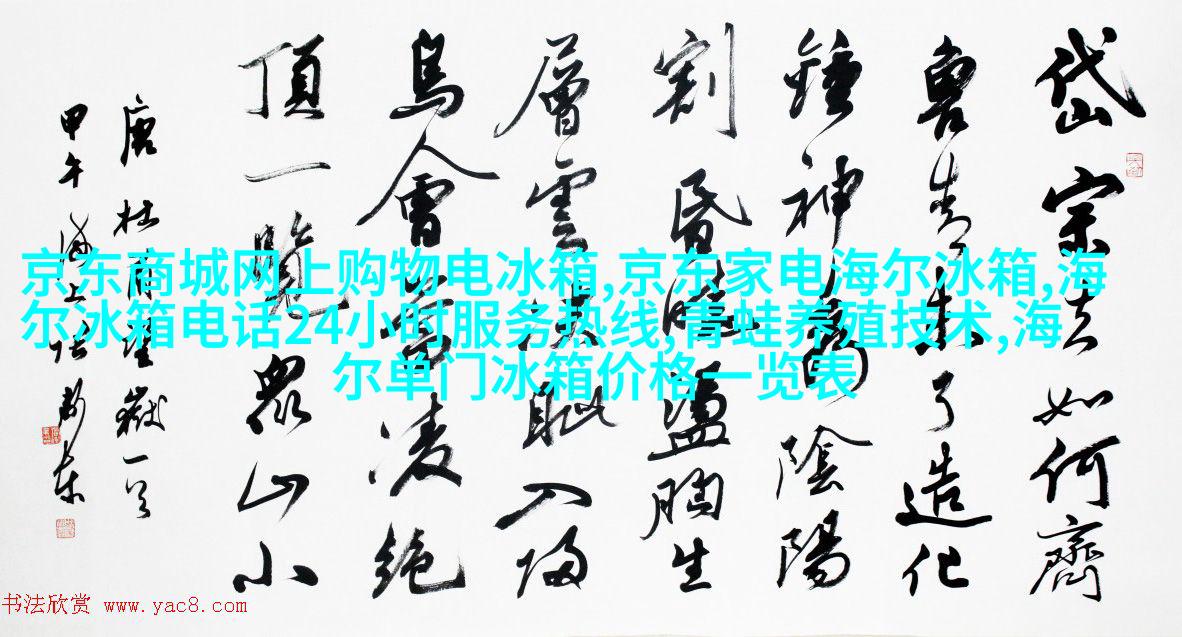 岱宗夫如何齊
魯青未了造化
鍾神秀陰陽
割昏曉盪胸生
層雲決眦入歸
鳥會當凌絕
頂一覽眾山小
唐杜甫望嶽一首
甲午海上
京东商城网上购物电冰箱,京东家电海尔冰箱,海
尔冰箱电话24小时服务热线,青蛙养殖技术,海
尔单门冰箱价格一览表
书法欣赏 www.yac8.com